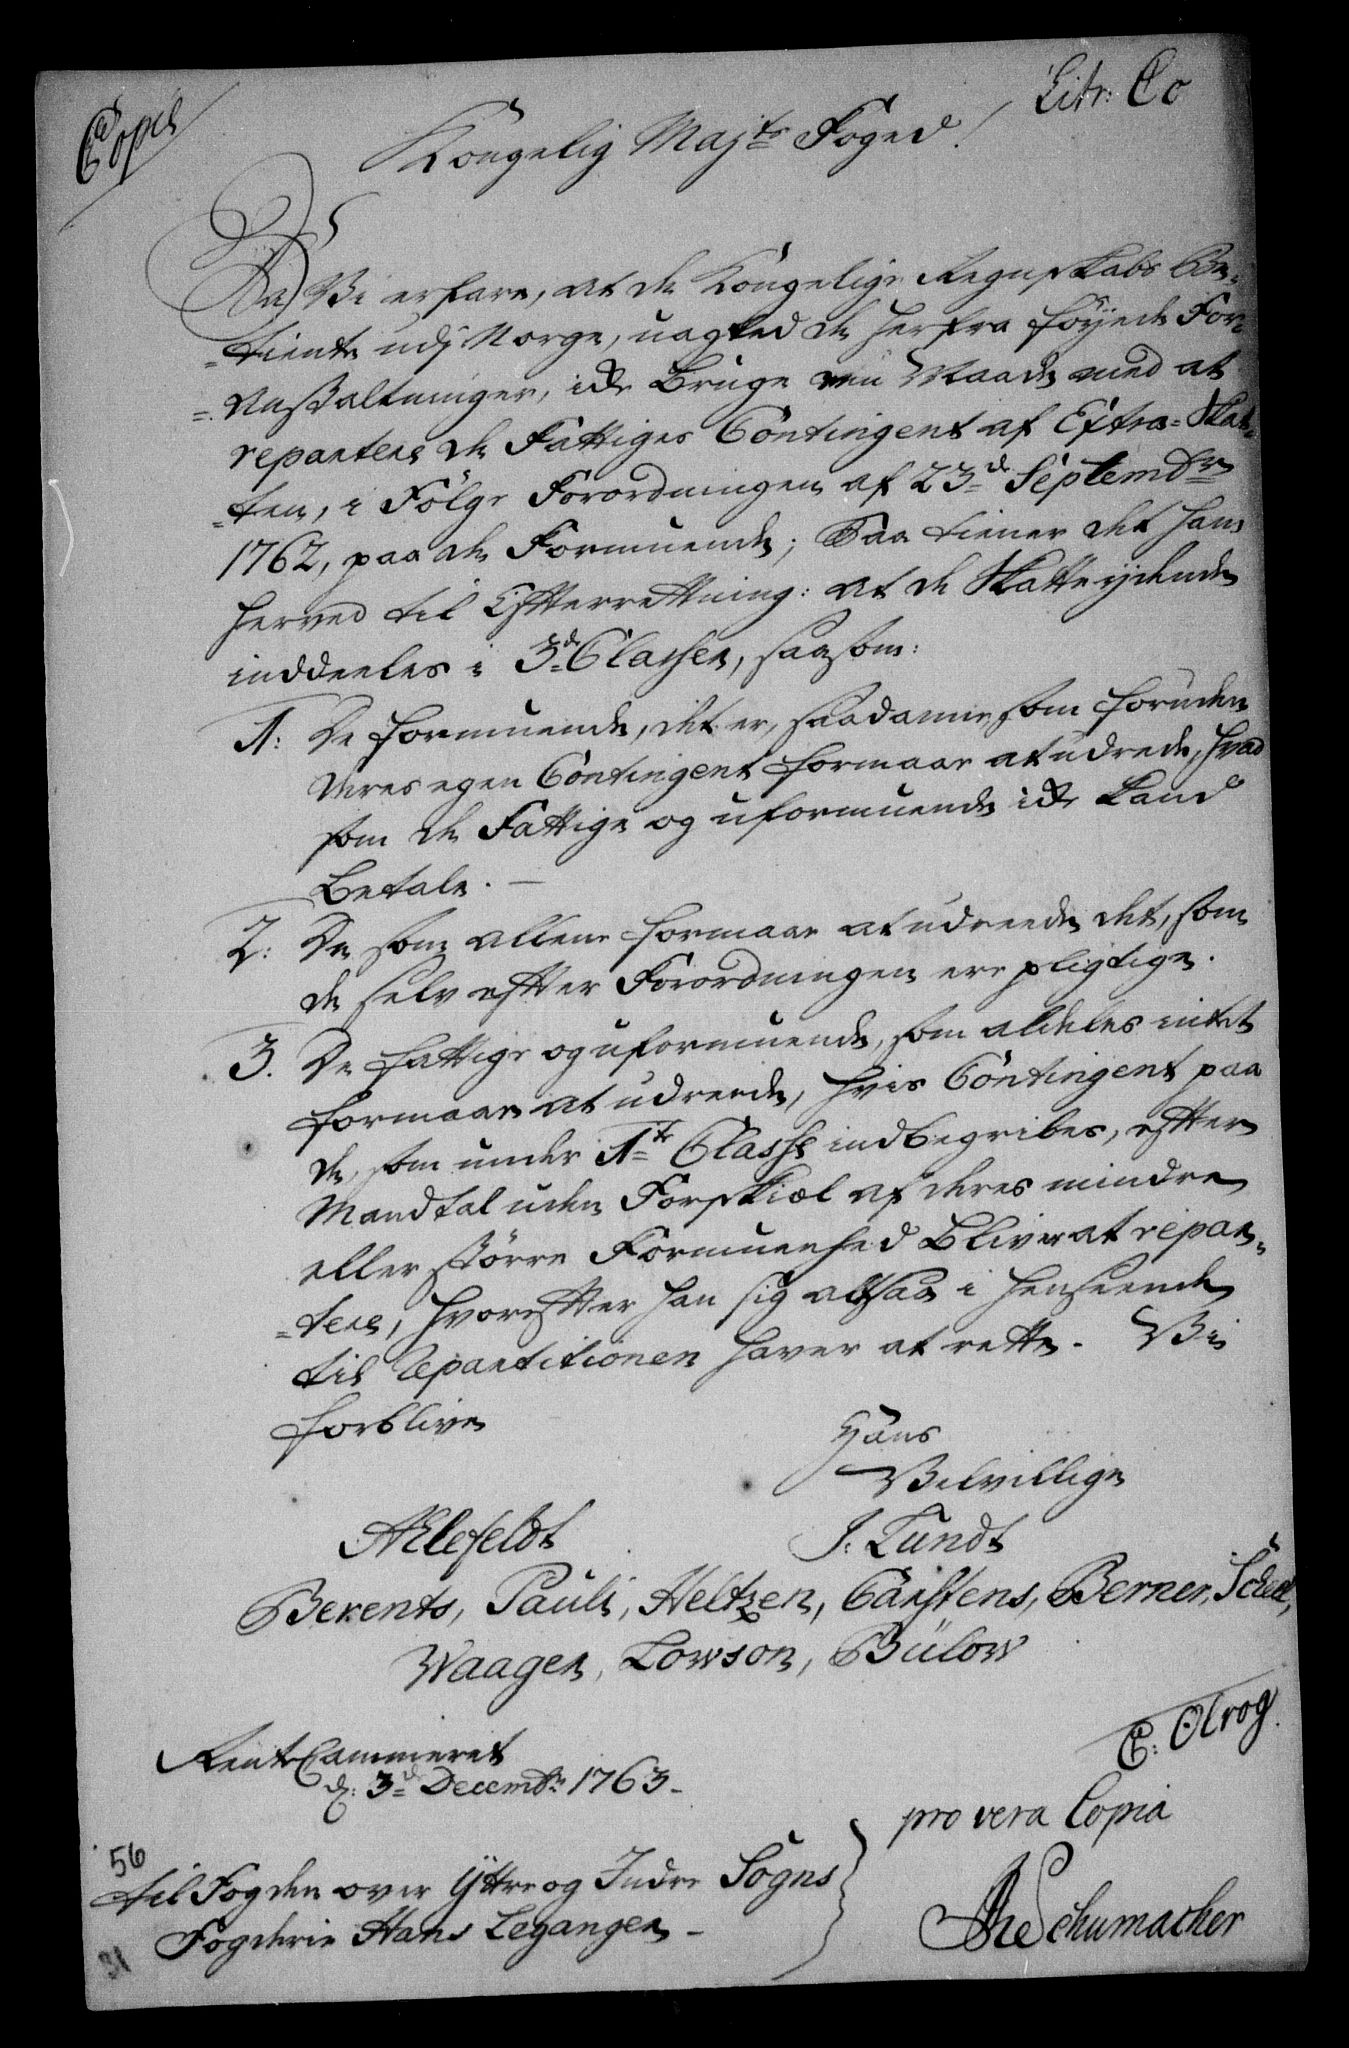 Litr: Co
Copie
Kongelig Majts Foged!
Da Vi erfare, at de Kongelige Regnskabs Be-
=tiente udj Norge, uagted de herfra föyede For-
=anstaltninger, icke bruge een Maade med at
repartere de Fattiges Contingent af Extra-Skat-
=ten, i Fölge Forordningen af 23de Septembr
1762, paa de Formuende; Saa tiener det ham
herved til Efterrettning: at de Skatteydende
inddeeles i 3de Classer, saasom:
1: De formuende, det er, saadanne som foruden
deres egen Contingent formaar at udrede, hvad
som de Fattige og uformuende icke kand
betale. —
2: De som allene formaar at udreede det, som
de selv efter Forordningen ere pligtige.
3. De fattige og uformuende, som aldeles intet
formaar at udreede, hvis Contingent paa
de, som under 1te Classe indbegribes, efter
Mandtal uden Forskiæl af deres mindre
eller större Formuenhed bliver at repar-
=tere, hvorefter han sig altsaa i henseende
til Repartitionen haver at rette. Vi
forblive
Hans
Velvillige
Ahlefeldt J. Lundt
Berents, Pauli, Heltzen, Carstens, Berner, Schell,
Waagen, Lowson, Bülow
E: Olrog.
Rente Cammeret
d: 3de Decembr 1763.
pro vera Copia
56
til Fogden over Yttre og Indre Sogns
Fogderie Hans Legangen -
Schumacher
31